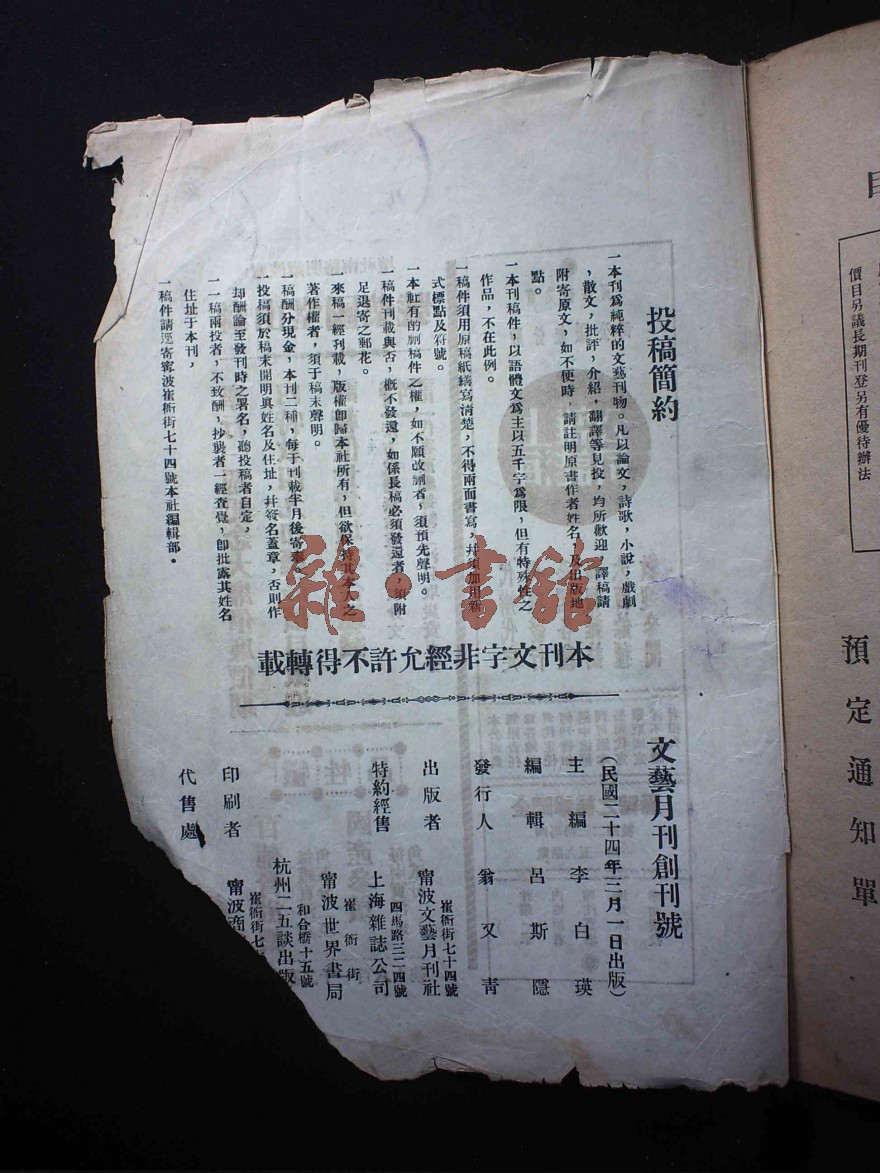 投稿簡約
一本刊爲純粹的文藝刊物。凡以論文，詩歌，小說，戲劇
，散文，批評，介紹，翻譯等見投，均所歡迎，譯稿請
附寄原文，如不便時，請註明原書作者姓名，及出版地
點。
一本刊稿件，以語體文爲主以五千字爲限，但有特殊性之
作品，不在此例。
一稿件須用原稿紙繕寫清楚，不得兩面書寫，幷須加用新
式標點及符號。
一本社有酌刪稿件之權，如不願改刪者，須預先聲明。
一稿件刊載與否，概不發還，如係長稿必須發還者，須附
足退寄之郵花。
一來稿一經刊載，版權卽歸本社所有，但欲保持其本人之
著作權者，須于稿末聲明。
一稿酬分現金，本刊二種，每于刊載半月後寄奉。
一投稿須於稿末開明眞姓名及住址，幷簽名蓋章，否則作
却酬論至發刊時之署名，聽投稿者自定，
一一稿兩投者，不致酬，抄襲者一經查覺，卽批露其姓名
住址于本刊，
一稿件請逕寄甯波崔衙街七十四號本社編輯部。
本刊文字非經允許不得轉載
文藝月刊創刊號
（民國二十四年三月一日出版）
主編 李白瑛
編輯 呂斯隱
發行人 翁又青
出版者 甯波文藝月刊社
崔衙街七十四號
特約經售 上海雜誌公司
四馬路三二四號
甯波世界書局
崔衙街
杭州二五談出版
和合橋十五號
印刷者 甯波商
崔衙街七
代售處
價目另議長期刊登另有優待辦法
預定通知單
雜·書館